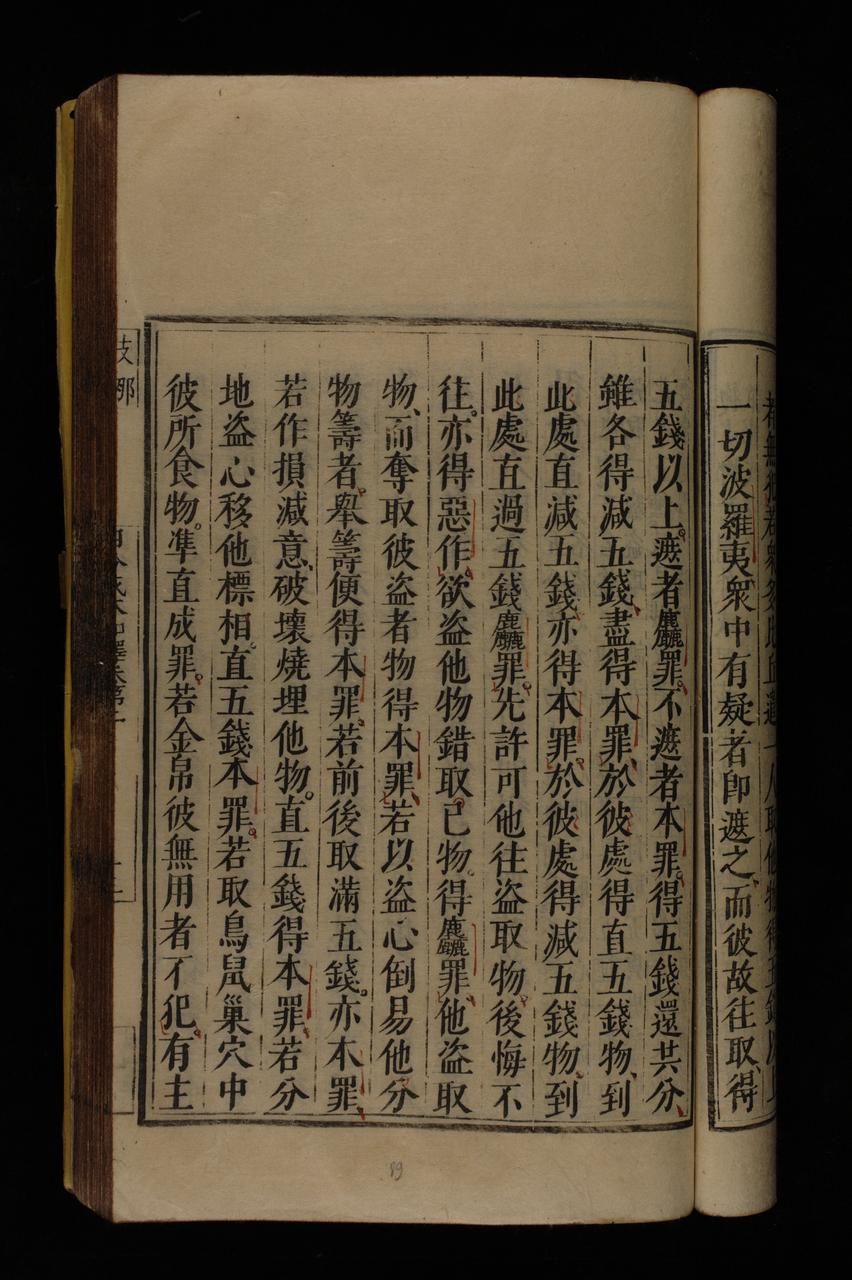 一切波羅夷衆中有疑者即遮之、而彼故往取、得
五錢以上。遮者麤罪。不遮者本罪。得五錢還共分、
雖各得減五錢、盡得本罪、於彼處得直五錢物、到
此處直減五錢、亦得本罪。於彼處得減五錢物、到
此處直過五錢麤罪。先許可他往盜取物。後悔不
往。亦得惡作、欲盜他物錯取。已物。得麤罪、他盜取
物、而奪取彼盜者物得本罪、若以盜心倒易他分
物籌者。舉籌便得本罪、若前後取滿五錢。亦本罪、
若作損減意、破壞燒埋他物。直五錢得本罪、若分
地盜心移他標相。直五錢本罪。若取鳥鼠巢穴中
彼所食物。準直成罪。若金帛彼無用者不犯。有主
89